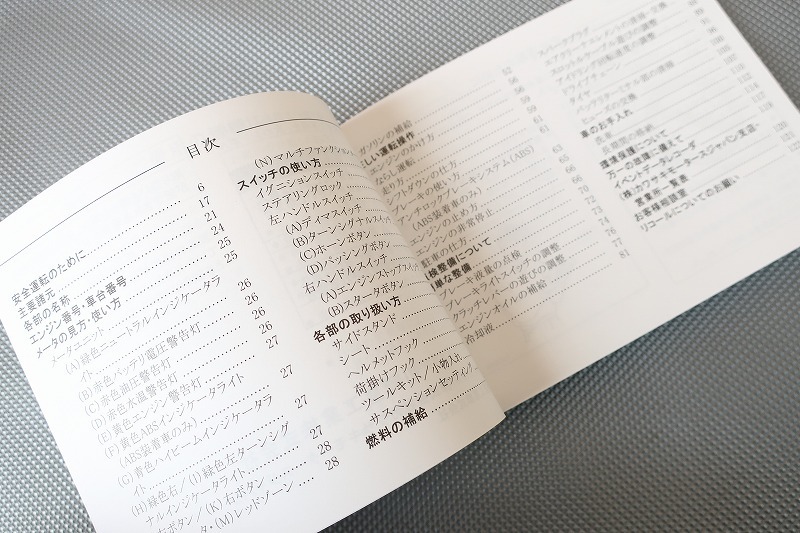 目次
安全運転のために 6
主要諸元 17
各部の名称 21
エンジン番号・車台番号 24
メータの見方・使い方 25
メータユニット 25
(A)緑色ニュートラルインジケータラ
イト 26
(B)赤色バッテリ電圧警告灯 26
(C)赤色油圧警告灯 26
(D)赤色水温警告灯 26
(E)黄色エンジン警告灯 27
(F)黄色ABSインジケータライト
(ABS装着車のみ) 27
(G)青色ハイビームインジケータラ
イト 27
(H)緑色右/(I)緑色左ターンシグ
ナルインジケータライト 27
右ボタン/(K)右ボタン 28
タ・(M)レッドゾーン 28
(N)マルチファンクション
スイッチの使い方
イグニションスイッチ
ステアリングロック
左ハンドルスイッチ
(A)ディマスイッチ
(B)ターンシグナルスイッチ
(C)ホーンボタン
(D)パッシングボタン
右ハンドルスイッチ
(A)エンジンストップスイッチ
(B)スタータボタン
各部の取り扱い方
サイドスタンド
シート
ヘルメットフック
荷掛けフック
ツールキット/小物入れ
サスペンションセッティング
燃料の補給
ガソリンの補給
しい運転操作
ンジンのかけ方
ならし運転
走り方
フトダウンの仕方
ブレーキの使い方
アンチロックブレーキシステム(ABS)
(ABS装着車のみ)
エンジンの止め方
エンジンの非常停止
駐車の仕方
検整備について
単な整備
ブレーキ液量の点検
ブレーキライトスイッチの調整
クラッチレバーの遊びの調整
エンジンオイルの補給
冷却液 81
スパークプラグ
エアクリーナエレメントの清掃・交換
スロットルケーブル遊びの調整
アイドリング回転速度の調整
ドライブチェーン
タイヤ
バッテリターミナル部の清掃
ヒューズの交換
車のお手入れ
洗車
長期間の格納
環境保護について
万一の故障に備えて
イベントデータレコーダ
(株)カワサキモータースジャパン支店・
営業所一覧表
お客様相談室
リコールについてのお願い